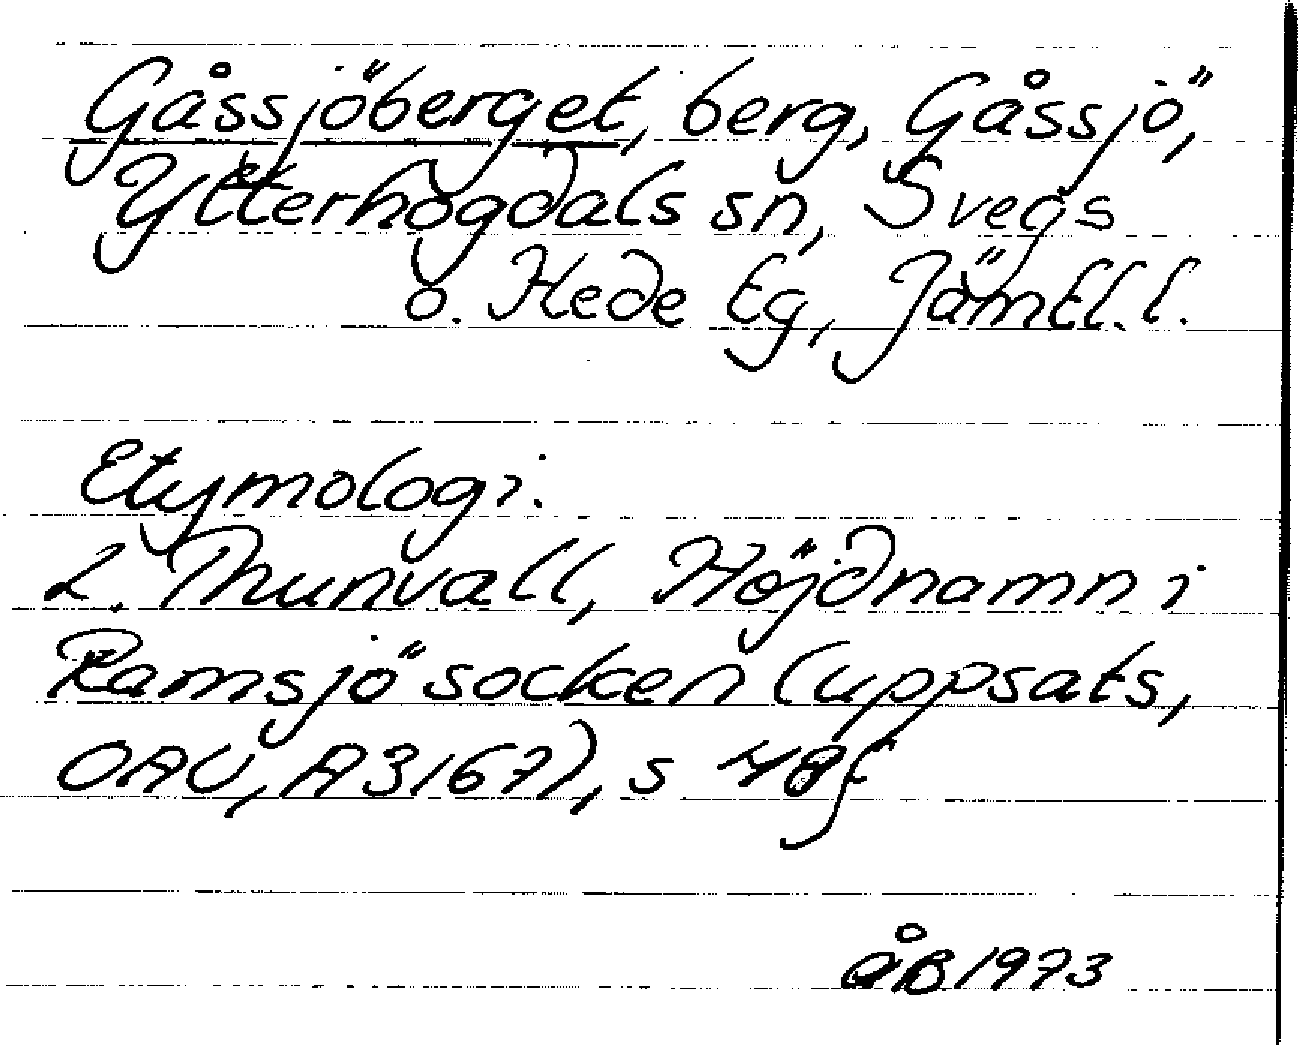 Gåssjöberget, berg, Gåssjö,
Ytterhogdals sn, Svegs
o. Hede tg, Jämtl. l.
Etymologi.
L. Thunvall, Höjdnamn i
Ramsjö socken (uppsats,
OAU, A3167), s 48f
ÅB 1973